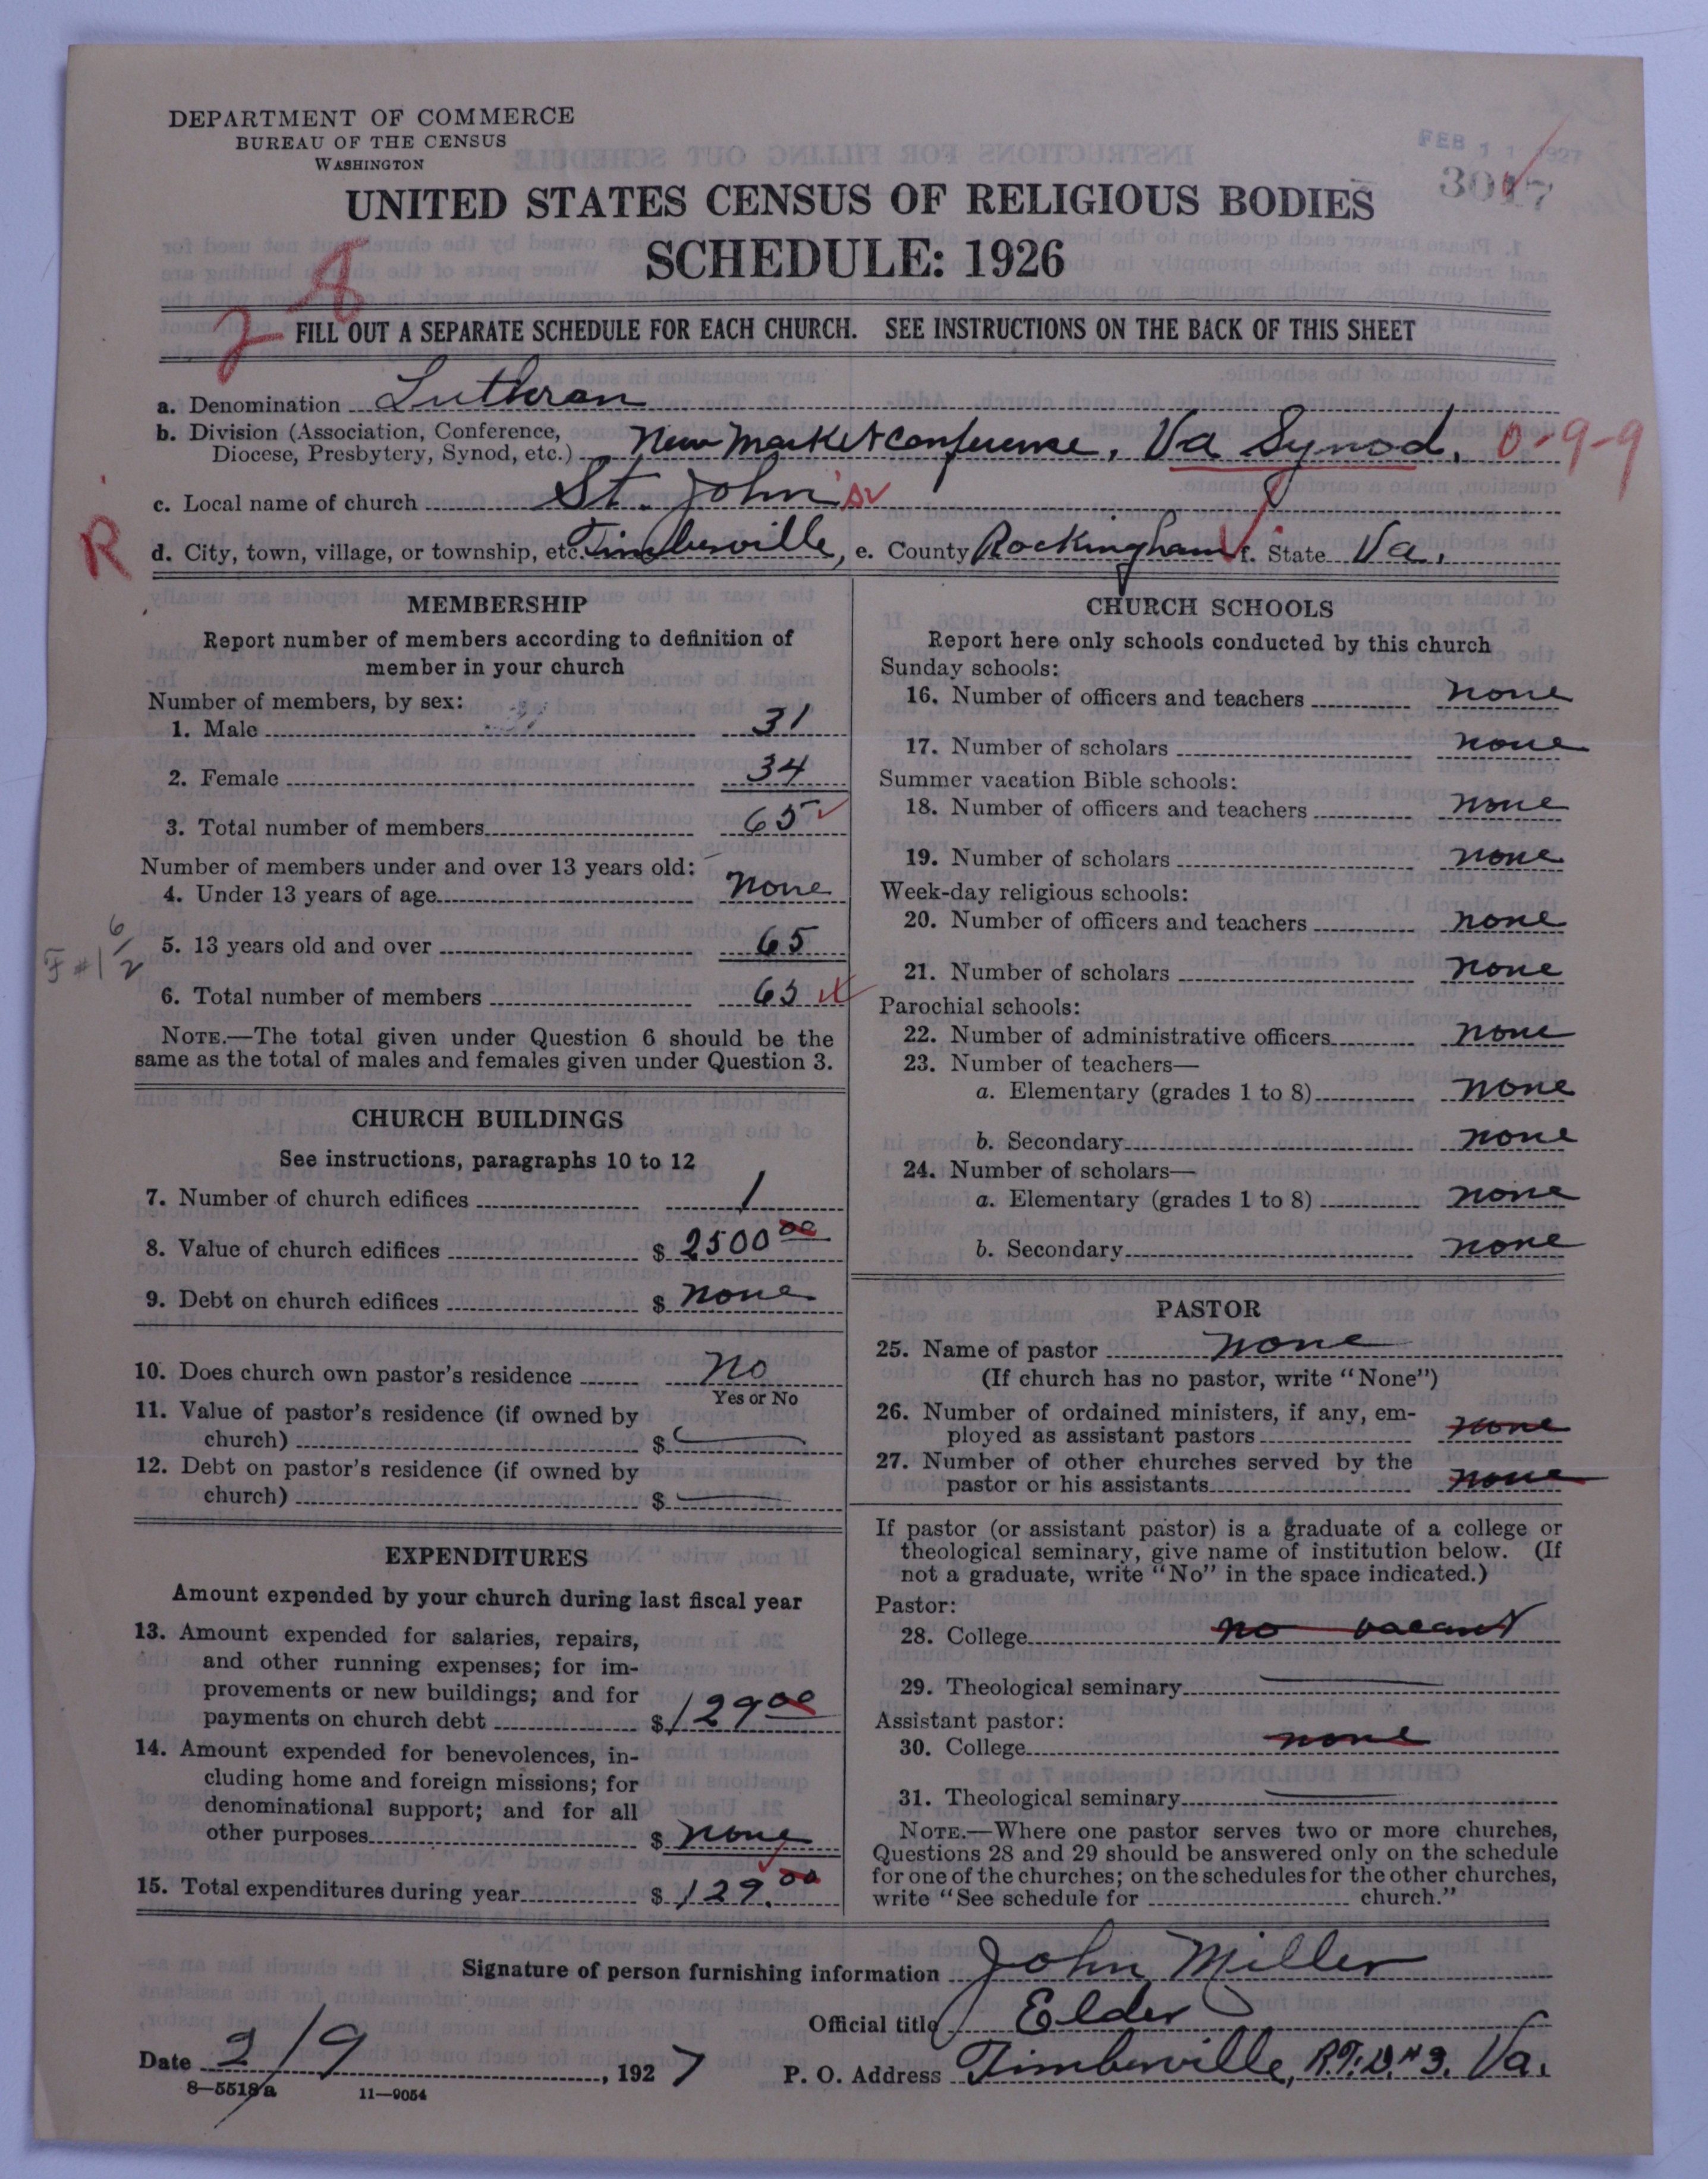 DEPARTMENT OF COMMERCE
BUREAU OF THE CENSUS
WASHINGTON
FEB 11 1927
3017
UNITED STATES CENSUS OF RELIGIOUS BODIES
SCHEDULE: 1926
FILL OUT A SEPARATE SCHEDULE FOR EACH CHURCH. SEE INSTRUCTIONS ON THE BACK OF THIS SHEET
a. Denomination Lutheran
b. Division (Association, Conference,
Diocese, Presbytery, Synod, etc.) New Market Conference, Va Synod. 0-9-9
c. Local name of church St. John's
R
d. City, town, village, or township, etc. Timberville, e. County Rockingham f. State Va.
MEMBERSHIP
Report number of members according to definition of
member in your church
Number of members, by sex:
1. Male 31
2. Female 34
3. Total number of members 65
Number of members under and over 13 years old:
4. Under 13 years of age none
5. 13 years old and over 65
F #1 6/2
6. Total number of members 65
NOTE.—The total given under Question 6 should be the
same as the total of males and females given under Question 3.
CHURCH BUILDINGS
See instructions, paragraphs 10 to 12
7. Number of church edifices 1
8. Value of church edifices $ 2500 00
9. Debt on church edifices $ none
10. Does church own pastor's residence no
Yes or No
11. Value of pastor's residence (if owned by
church) $
12. Debt on pastor's residence (if owned by
church) $
EXPENDITURES
Amount expended by your church during last fiscal year
13. Amount expended for salaries, repairs,
and other running expenses; for im-
provements or new buildings; and for
payments on church debt $ 129 00
14. Amount expended for benevolences, in-
cluding home and foreign missions; for
denominational support; and for all
other purposes $ none
15. Total expenditures during year $ 129.00
CHURCH SCHOOLS
Report here only schools conducted by this church
Sunday schools:
16. Number of officers and teachers none
17. Number of scholars none
Summer vacation Bible schools:
18. Number of officers and teachers none
19. Number of scholars none
Week-day religious schools:
20. Number of officers and teachers none
21. Number of scholars none
Parochial schools:
22. Number of administrative officers none
23. Number of teachers—
a. Elementary (grades 1 to 8) none
b. Secondary none
24. Number of scholars—
a. Elementary (grades 1 to 8) none
b. Secondary none
PASTOR
25. Name of pastor none
(If church has no pastor, write "None")
26. Number of ordained ministers, if any, em-
ployed as assistant pastors none
27. Number of other churches served by the
pastor or his assistants none
If pastor (or assistant pastor) is a graduate of a college or
theological seminary, give name of institution below. (If
not a graduate, write "No" in the space indicated.)
Pastor:
28. College no vacant
29. Theological seminary
Assistant pastor:
30. College none
31. Theological seminary
NOTE.—Where one pastor serves two or more churches,
Questions 28 and 29 should be answered only on the schedule
for one of the churches; on the schedules for the other churches,
write "See schedule for church."
Signature of person furnishing information John Miller
Official title Elder
Date 2/9, 1927 P. O. Address Timberville, R.F.D. #3. Va.
8—5518a 11—9054